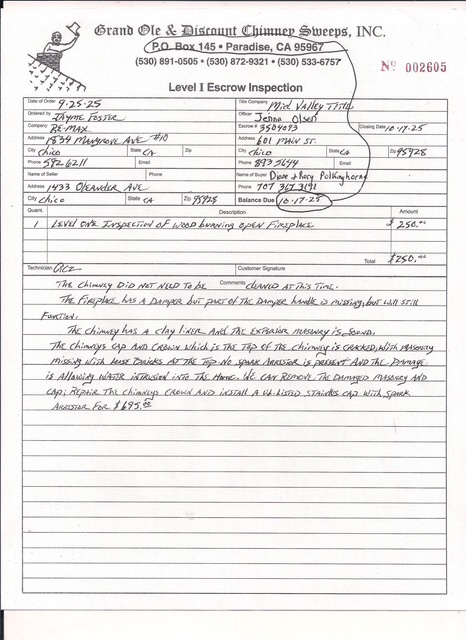 Grand Ole & Discount Chimney Sweeps, INC.
P.O. Box 145 • Paradise, CA 95967
(530) 891-0505 • (530) 872-9321 • (530) 533-6757
Nº 002605
Level I Escrow Inspection
Date of Order 9-25-25 Title Company Mid Valley Title
Ordered by Jayme Foster Officer Jenna Olsen
Company Re-Max Escrow # 3504093 Closing Date 10-17-25
Address 1834 Mangrove Ave #10 Address 601 Main St.
City Chico State CA Zip City Chico State CA Zip 95928
Phone 592 6211 Email Phone 893 5644 Email
Name of Seller Phone Name of Buyer Diane & Rory Polkinghorne
Address 1433 Oleander Ave Phone 707 367 3191
City Chico State CA Zip 95928 Balance Due 10-17-25
Quant. Description Amount
1 Level One Inspection of wood burning open fireplace $250.00
Total $250.00
Technician Customer Signature
Comments
The chimney did not need to be cleaned at this time.
The fireplace has a damper but part of the damper handle is missing, but will still
function.
The chimney has a clay liner and the exterior masonry is sound.
The chimneys cap and crown which is the top of the chimney is cracked, with masonry
missing with loose bricks at the top no spark arrestor is present and the damage
is allowing water intrusion into the home. We can remove the damaged masonry and
cap; repair the chimneys crown and install a UL listed stainless cap with spark
arrestor for $695.00